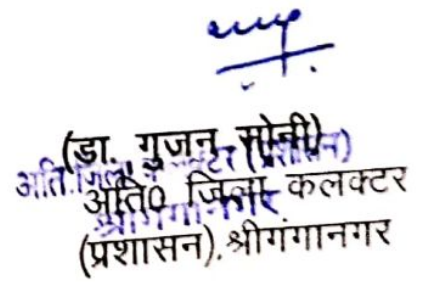 (डा. गुजन सोनी)
अति0 जिला कलक्टर
(प्रशासन).श्रीगंगानगर
अति.जिला कलेक्टर (प्रशासन)
श्रीगंगानगर